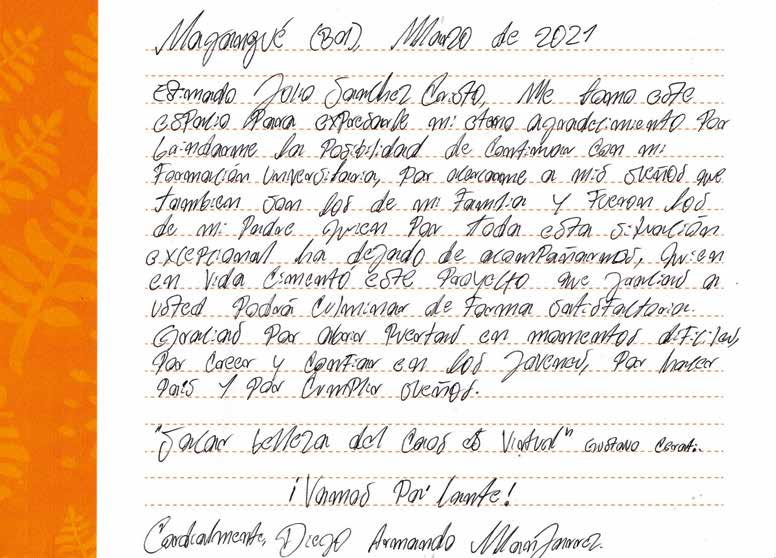 Magangué (Bol), Marzo de 2021
Estimado Julio Sanchez Cristo, Me tomo este
espacio Para expresarle mi eterno agradecimiento Por
brindarme la Posibilidad de Continuar con mi
Formación universitaria, Por acercarme a mis sueños que
tambien son los de mi Familia y Fueron los
de mi Padre quien Por toda esta situación
excepcional ha dejado de acompañarnos, quien
en vida Cimentó este Proyecto que gracias a
usted Podrá Culminar de Forma satisfactoria.
Gracias Por abrir Puertas en momentos difíciles,
Por Creer y Confiar en los Jovenes, Por hacer
País y Por Cumplir sueños.
"Sacar belleza del Caos es Virtud" Gustavo Cerati.
¡Vamos Pa'lante!
Cordialmente, Diego Armando Manjarrez.